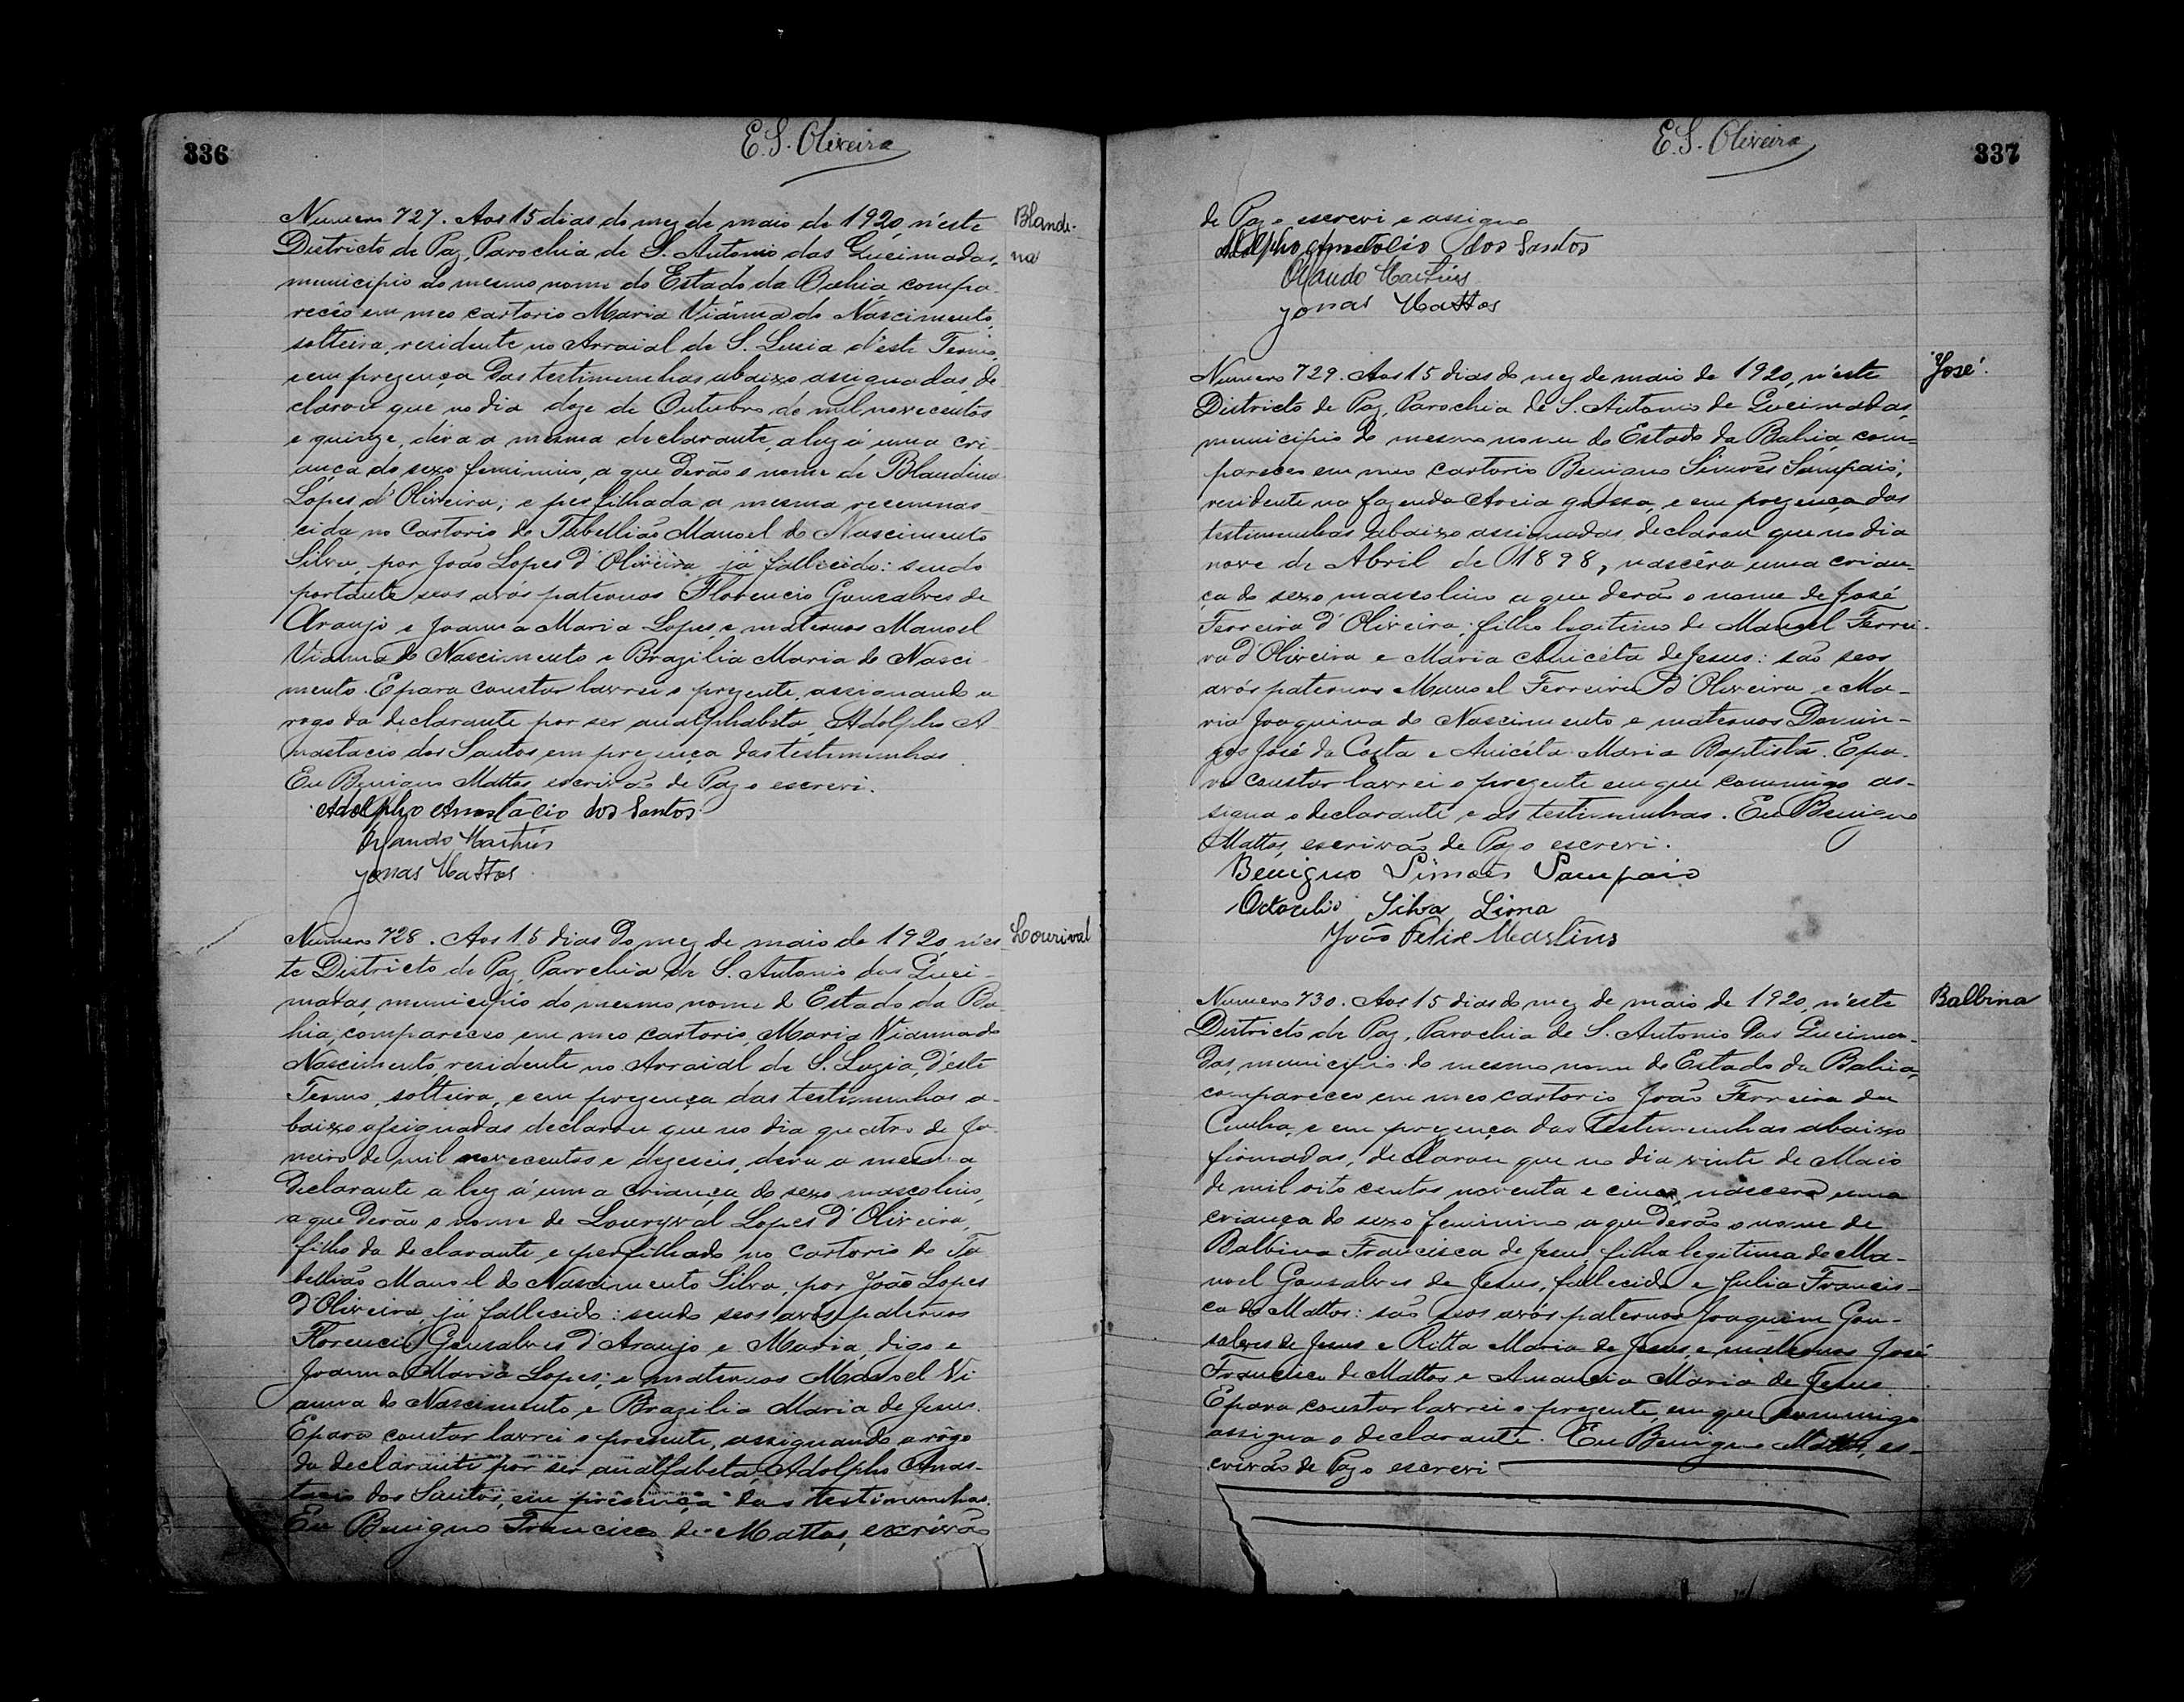 336
E. S. Oliveira
Numero 727. Aos 15 dias do mez de maio de 1920, n'este
Blandi-
Districto de Paz, Parochia de S. Antonio das Queimadas,
na
municipio do mesmo nome do Estado da Bahia compa-
receo em meo cartorio Maria Vianna do Nascimento,
solteira, residente no Arraial de S. Luzia d'este Termo,
e em prezença das testimunhas abaixo assignadas, de
clarou que no dia doze de Outubro de mil novecentos
e quinze, dera a mesma declarante, a luz á uma cri-
ança do sexo feminino, a que derão o nome de Blandina
Lopes d'Oliveira; e perfilhada a mesma recemnas-
cida no Cartorio do Tabellião Manoel do Nascimento
Silva, por João Lopes d'Oliveira já fallecido: sendo
portante seos avós paternos Florencio Gonsalves de
Araujo e Joanna Maria Lopes, e maternos Manoel
Vianna do Nascimento e Brazilia Maria do Nasci-
mento. E para constar lavrei o prezente, assignando a
rogo da declarante por ser analphabeta, Adolpho A-
nastacio dos Santos em prezença das testimunhas.
Eu Benigno Mattos escrivão de Paz o escrevi.
Adolpho Anastácio dos Santos
Orlando Martins
Jonas Mattos
Numero 728. Aos 15 dias do mez de maio de 1920, n'es-
Lourival
te Districto de Paz, Parochia de S. Antonio das Quei-
madas, municipio do mesmo nome do Estado da Ba-
hia, compareceo em meo cartorio, Maria Vianna do
Nascimento, residente no Arraial de S. Luzia, d'este
Termo, solteira, e em prezença das testimunhas a-
baixo assignadas declarou que no dia quatro de Ja-
neiro de mil novecentos e dezeseis, dera a mesma
declarante a luz á uma criança do sexo mascolino,
a que derão o nome de Louryval Lopes d'Oliveira,
filho da declarante, e perfilhado no cartorio do Ta-
bellião Manoel do Nascimento Silva, por João Lopes
d'Oliveira, já fallecido: sendo seos avós paternos
Florencio Gonsalves d'Araujo e Maria, digo e
Joanna Maria Lopes; e maternos Manoel Vi
anna do Nascimento, e Brazilia Maria de Jesus.
E para constar lavrei o presente, assignando a rôgo
da declarante por ser analfabeta, Adolpho Anas-
tacio dos Santos, em presença das testimunhas.
Eu Benigno Francisco de Mattos, escrivão
337
E. S. Oliveira
de Paz o escrevi e assigno
Adolpho Anastácio dos Santos
Orlando Martins
Jonas Mattos
Numero 729. Aos 15 dias do mez de maio de 1920, n'este
José.
Districto de Paz, Parochia de S. Antonio de Queimadas,
municipio do mesmo nome do Estado da Bahia, com-
pareceo em meo cartorio Benigno Simões Sampaio,
residente na fazenda Areia grossa, e em prezença das
testimunhas abaixo assignadas, declarou que no dia
nove de Abril de 1898, nascêra uma crian-
ça do sexo mascolino a que derão o nome de José
Ferreira d'Oliveira; filho legitimo de Manoel Ferrei-
ra d'Oliveira e Maria Anicéta de Jesus: são seos
avós paternos Manoel Ferreira d'Oliveira e Ma-
ria Joaquina do Nascimento e maternos Domin-
gos José da Costa e Anicéta Maria Baptista. E pa-
ra constar lavrei o prezente em que commigo as-
signa o declarante e as testimunhas. Eu Benigno
Mattos, escrivão de Paz o escrevi.
Benigno Simões Sampaio
Octacilio Silva Lima
João Felix Martins
Numero 730. Aos 15 dias do mez de maio de 1920, n'este
Balbina
Districto de Paz, Parochia de S. Antonio das Queima-
das, municipio do mesmo nome do Estado da Bahia,
compareceo em meo cartorio João Ferreira da
Cunha, e em prezença das testimunhas abaixo
firmadas, declarou que no dia vinte de Maio
de mil oito centos noventa e cinco, nascera uma
criança do sexo feminino a que derão o nome de
Balbina Francisca de Jesus, filha legitima de Ma-
noel Gonsalves de Jesus, fallecido e Julia Francis-
ca de Mattos: são seos avós paternos Joaquim Gon-
salves de Jesus e Ritta Maria de Jesus, e maternos José
Francisco de Mattos e Amancia Maria de Jesus.
E para constar lavrei o prezente, em que commigo
assigna o declarante. Eu Benigno Mattos, es-
crivão de Paz o escrevi